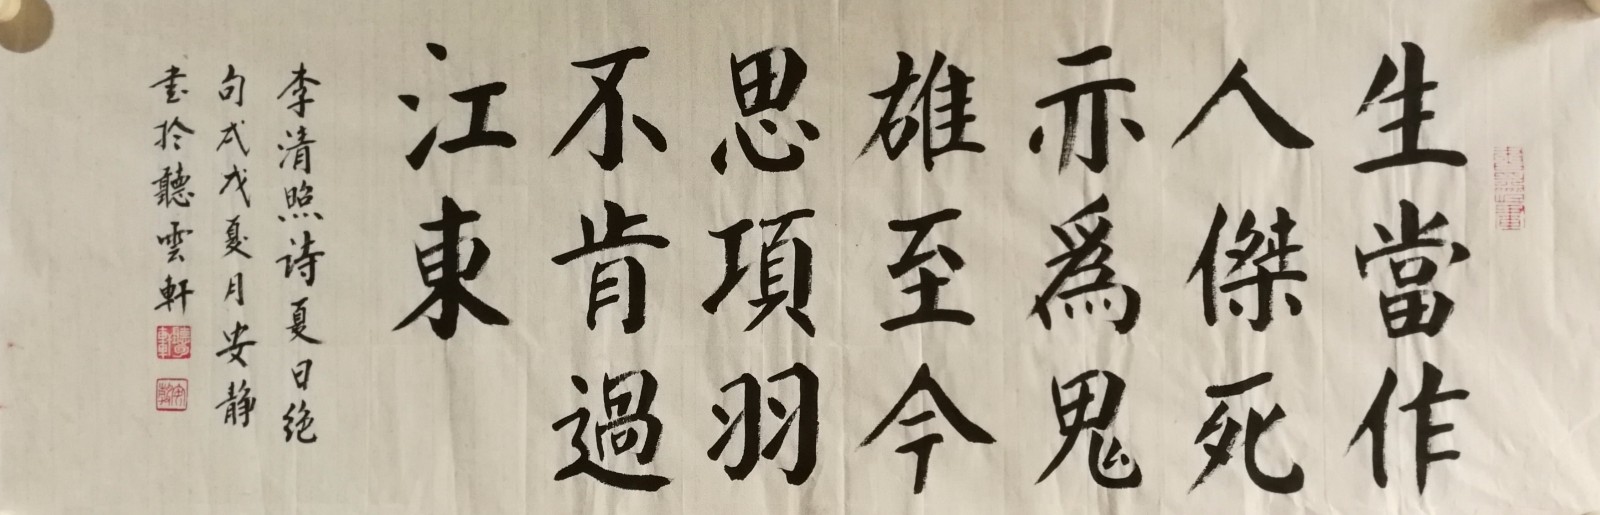 生當作
人傑死
亦爲鬼
雄至今
思項羽
不肯過
江東
李清照诗夏日绝
句戊戌夏月安静
书於聽雲軒